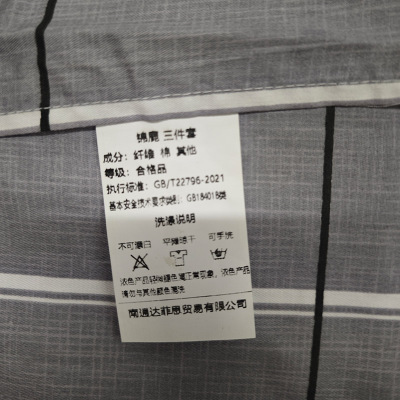 锦鹿 三件套
成分: 纤维 棉 其他
等级: 合格品
执行标准: GB/T22796-2021
基本安全技术要求类别: GB18401B类
洗涤说明
不可漂白 平摊晾干 可手洗
浅色产品轻微掉色属正常现象,
请勿与其他颜色混洗
南通达菲思贸易有限公司